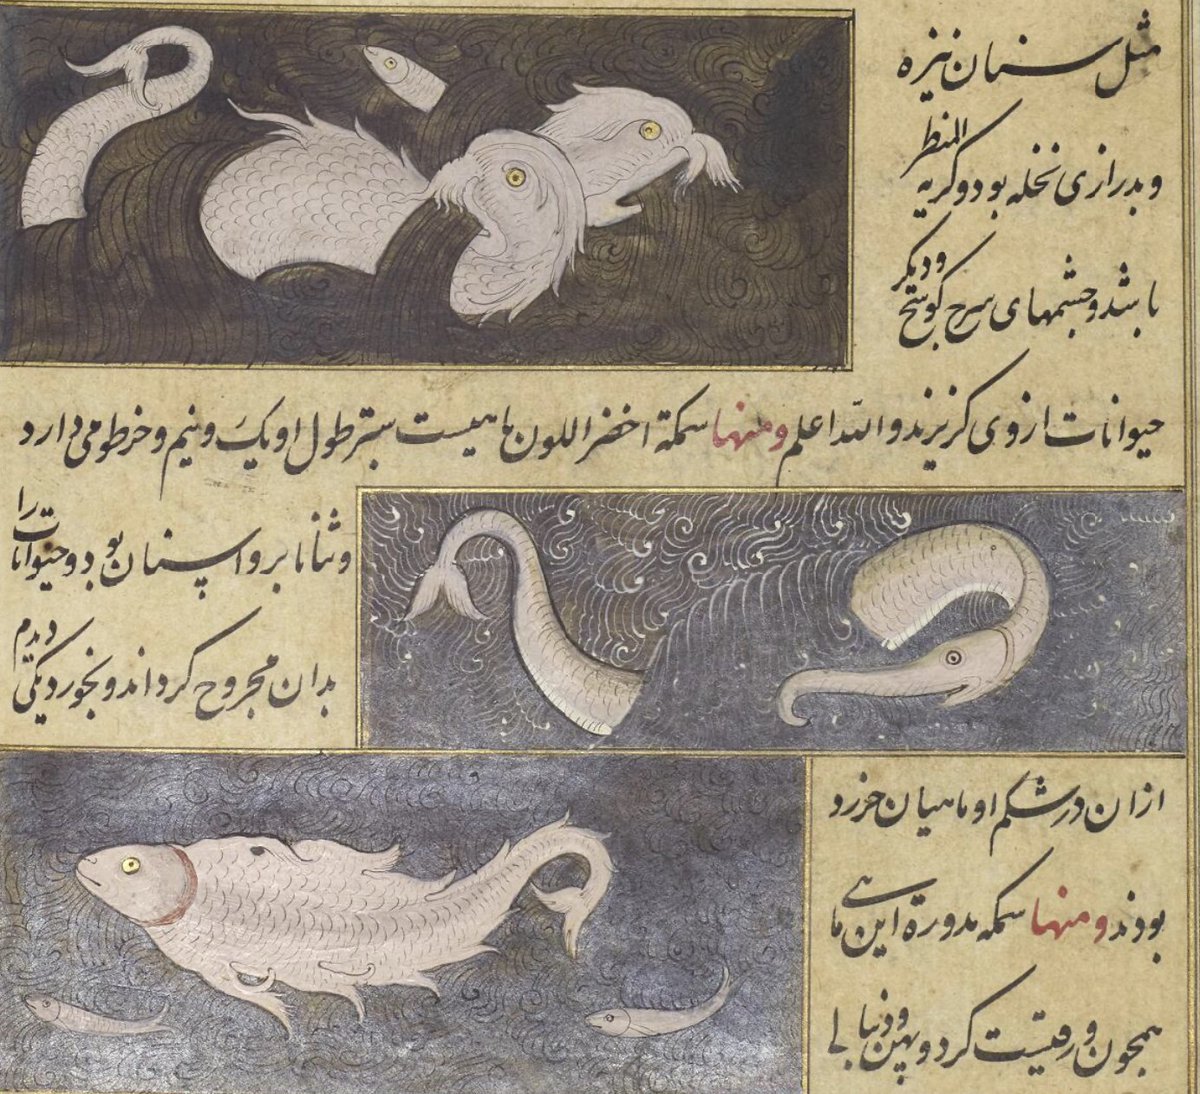 مثل سنان نیزه
و بدرازی نخله بود و کریه المنظر
باشد و چشمهای سرخ کوسج و دیگر
حیوانات از وی گریزند والله اعلم ومنها سمکة اخضر اللون ماهیست سبز طول او یک و نیم و خرطومی دارد
و بر و اسنان بود و حیوانات را
بدان مجروح کرداند و بخورد یکی دیدم
از ان در شکم او ماهیان خرد
بودند ومنها سمکه مدورة این ماهی
همچون ورقیست کرد و پهن و دنبالی